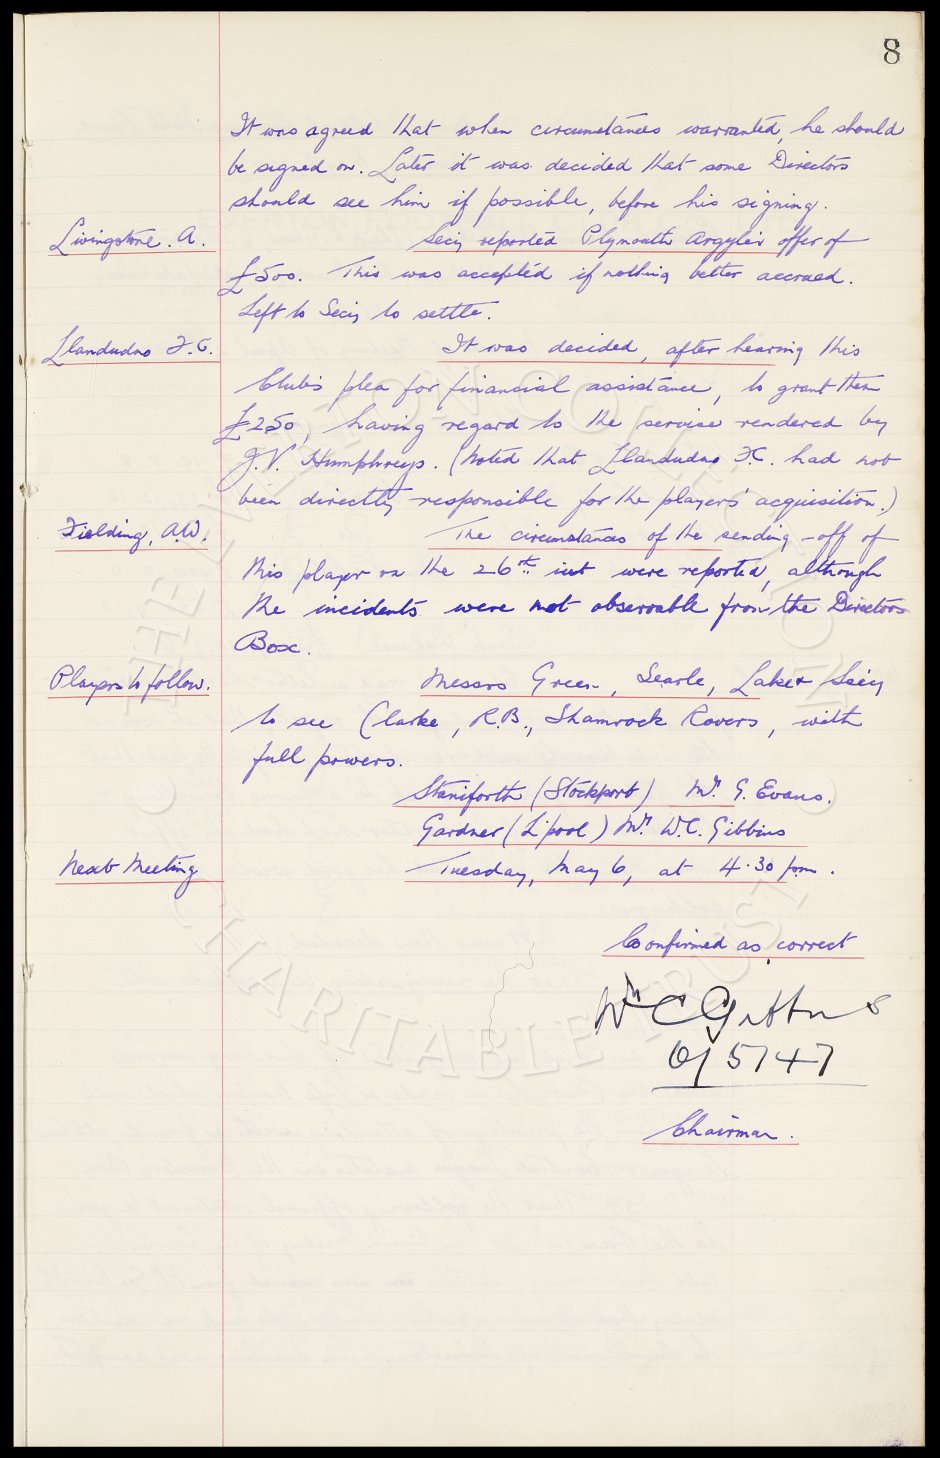 8
It was agreed that when circumstances warranted, he should
be signed on. Later it was decided that some Directors
should see him if possible, before his signing.
Livingstone. A. Secy reported Plymouth Argyle's offer of
£500. This was accepted if nothing better accrued.
Left to Secy to settle.
Llandudno F.C. It was decided, after hearing this
Club's plea for financial assistance, to grant them
£250, having regard to the service rendered by
J.V. Humphreys. (Noted that Llandudno F.C. had not
been directly responsible for the players' acquisition.)
Fielding, A.W. The circumstances of the sending-off of
this player on the 26th inst were reported, although
the incidents were not observable from the Directors
Box.
Players to follow. Messrs Green, Searle, Lake & Secy
to see Clarke, R.B., Shamrock Rovers, with
full powers.
Staniforth (Stockport) Mr. G. Evans.
Gardner (L'pool) Mr. W.C. Gibbins
Next Meeting Tuesday, May 6, at 4.30 p.m.
Confirmed as correct
Wm C Gibbins
6/5/47
Chairman.
THE EVERTON COLLECTION
CHARITABLE TRUST